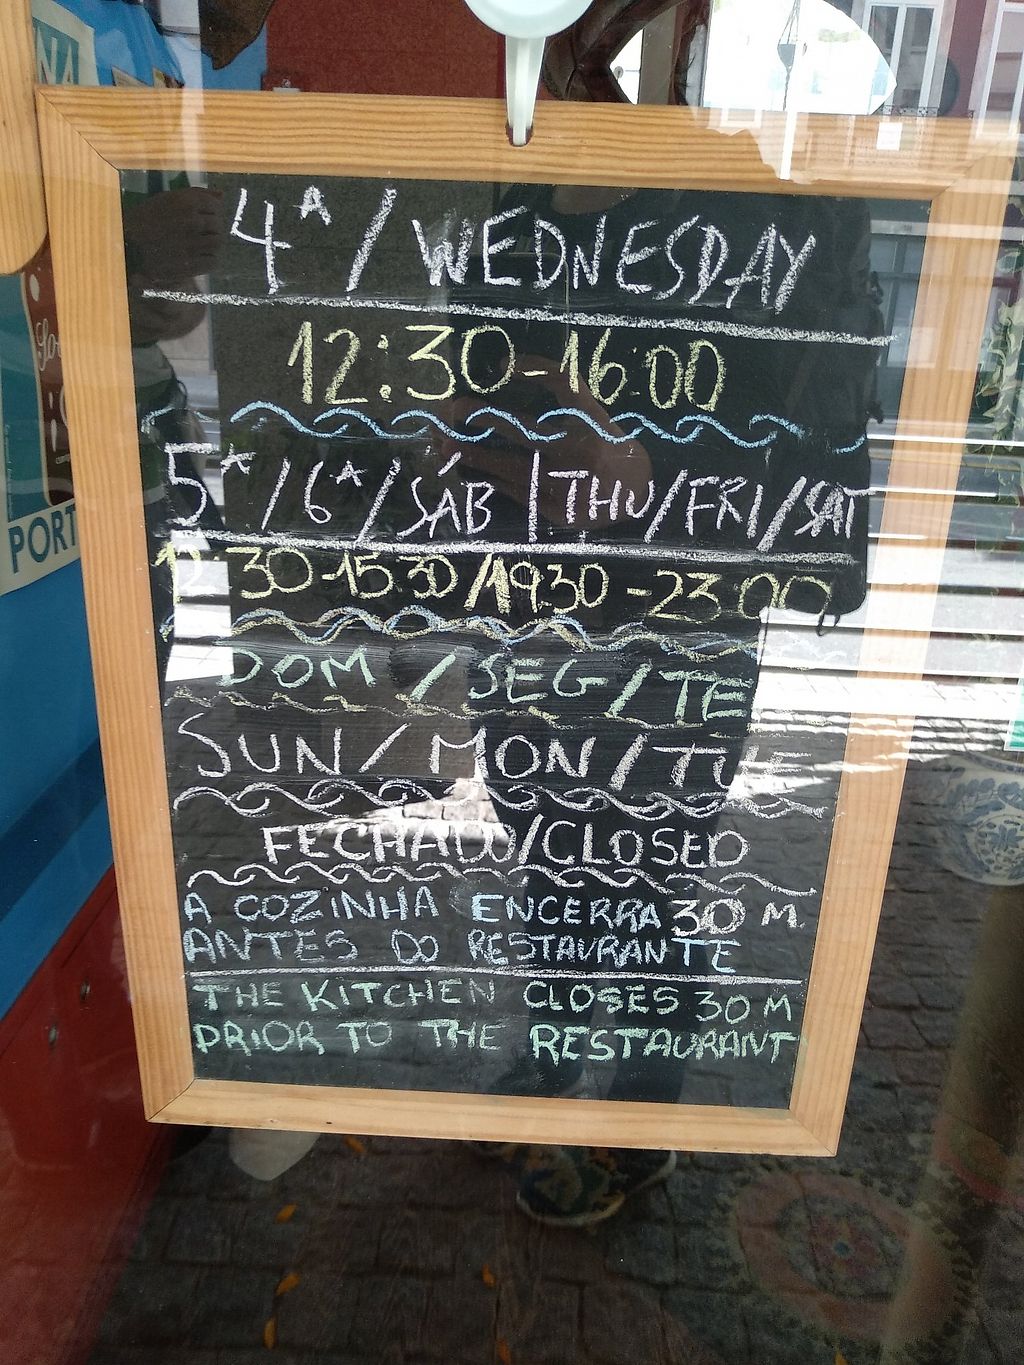 4ᴬ / WEDNESDAY
12:30-16:00
5ᴬ / 6ᴬ / SÁB | THU/FRI/SAT
12:30-15:30/19:30-23:00
DOM / SEG / TE
SUN / MON / TUE
FECHADO/CLOSED
A COZINHA ENCERRA 30 M.
ANTES DO RESTAURANTE
THE KITCHEN CLOSES 30 M
PRIOR TO THE RESTAURANT
PORT